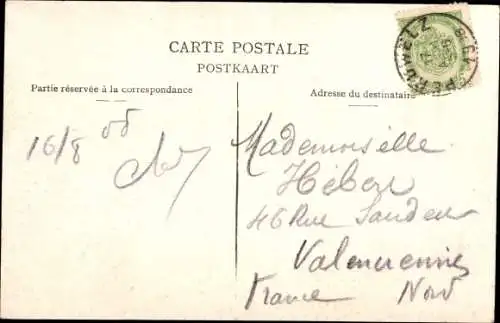 CARTE POSTALE
POSTKAART
Partie réservée à la correspondance
Adresse du destinataire
PERUWELZ
16/8
Mademoiselle
Hébert
46 Rue
Valenciennes
France Nord